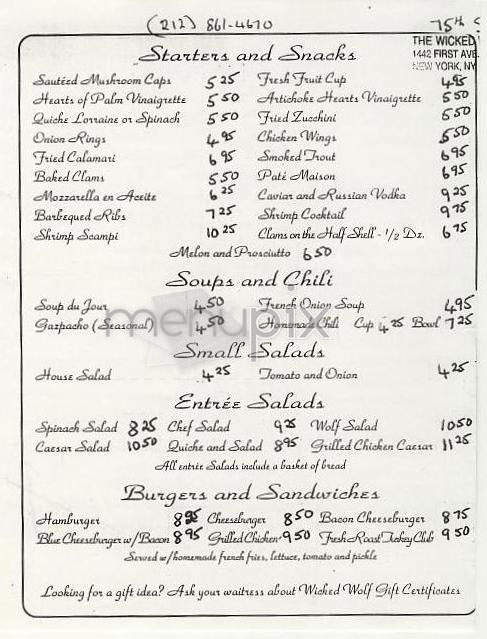 (212) 861-4670 75th
THE WICKED
1442 FIRST AVE
NEW YORK, NY
Starters and Snacks
Sautéed Mushroom Caps 5 25 Fresh Fruit Cup 4 95
Hearts of Palm Vinaigrette 5 50 Artichoke Hearts Vinaigrette 5 50
Quiche Lorraine or Spinach 5 50 Fried Zucchini 5 50
Onion Rings 4 95 Chicken Wings 5 50
Fried Calamari 6 95 Smoked Trout 6 95
Baked Clams 5 50 Paté Maison 6 95
Mozzarella en Aceite 6 25 Caviar and Russian Vodka 9 25
Barbequed Ribs 7 25 Shrimp Cocktail 9 75
Shrimp Scampi 10 25 Clams on the Half Shell - 1/2 Dz. 6 75
Melon and Prosciutto 6 50
Soups and Chili
Soup du Jour 4 50 French Onion Soup 4 95
Gazpacho (Seasonal) 4 50 Homemade Chili Cup 4 25 Bowl 7 25
menupix
Small Salads
House Salad 4 25 Tomato and Onion 4 25
Entrée Salads
Spinach Salad 8 25 Chef Salad 9 25 Wolf Salad 10 50
Caesar Salad 10 50 Quiche and Salad 8 95 Grilled Chicken Caesar 11 25
All entrée Salads include a basket of bread
Burgers and Sandwiches
Hamburger Cheeseburger 8 50 Bacon Cheeseburger 8 75
Blue Cheeseburger w/Bacon 8 95 Grilled Chicken 9 50 Fresh Roast Turkey Club 9 50
Served w/homemade french fries, lettuce, tomato and pickle
Looking for a gift idea? Ask your waitress about Wicked Wolf Gift Certificates